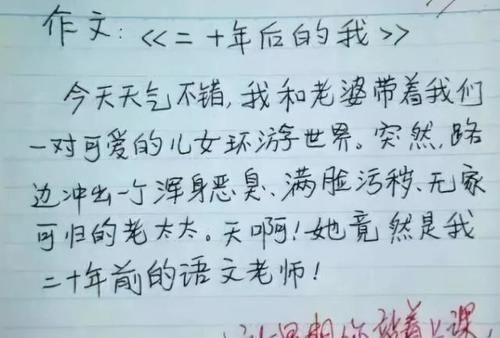 作文:《二十年后的我》
今天天气不错,我和老婆带着我们
一对可爱的儿女环游世界。突然,路
边冲出一个浑身恶臭、满脸污秽、无家
可归的老太太。天啊!她竟然是我
二十年前的语文老师!
你站着上课,